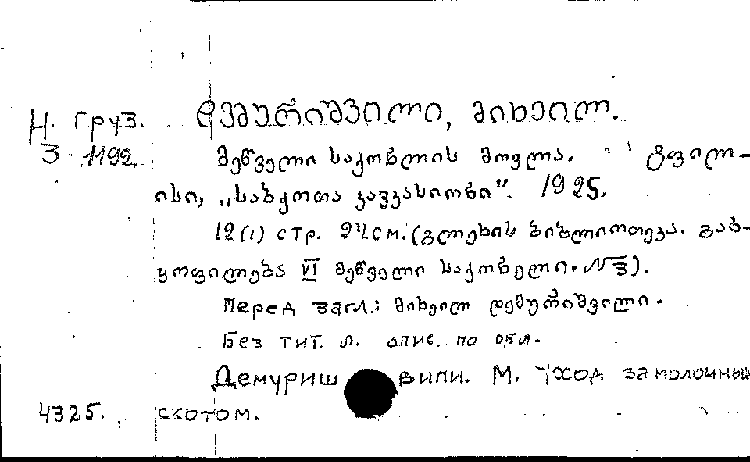 Н. Груз. დემურიშვილი, მიხეილ.
3 1192. მეწველი საქონლის მოვლა. ტფილ-
ისი, „საბჭოთა კავკასიონი“. 1925.
12 (1) стр. 24 см. (გლეხის ბიბლიოთეკა. გან-
ყოფილება VI მეწველი საქონელი. № 3).
Перед загл.: მიხეილ დემურიშვილი.
Без тит. л. опис. по обл.
Демуришвили. М. Уход за молочным
4325. скотом.